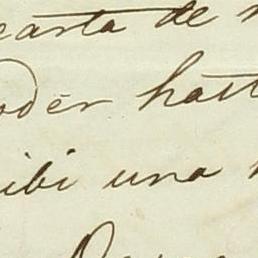 carta de
oder hast
ibi una